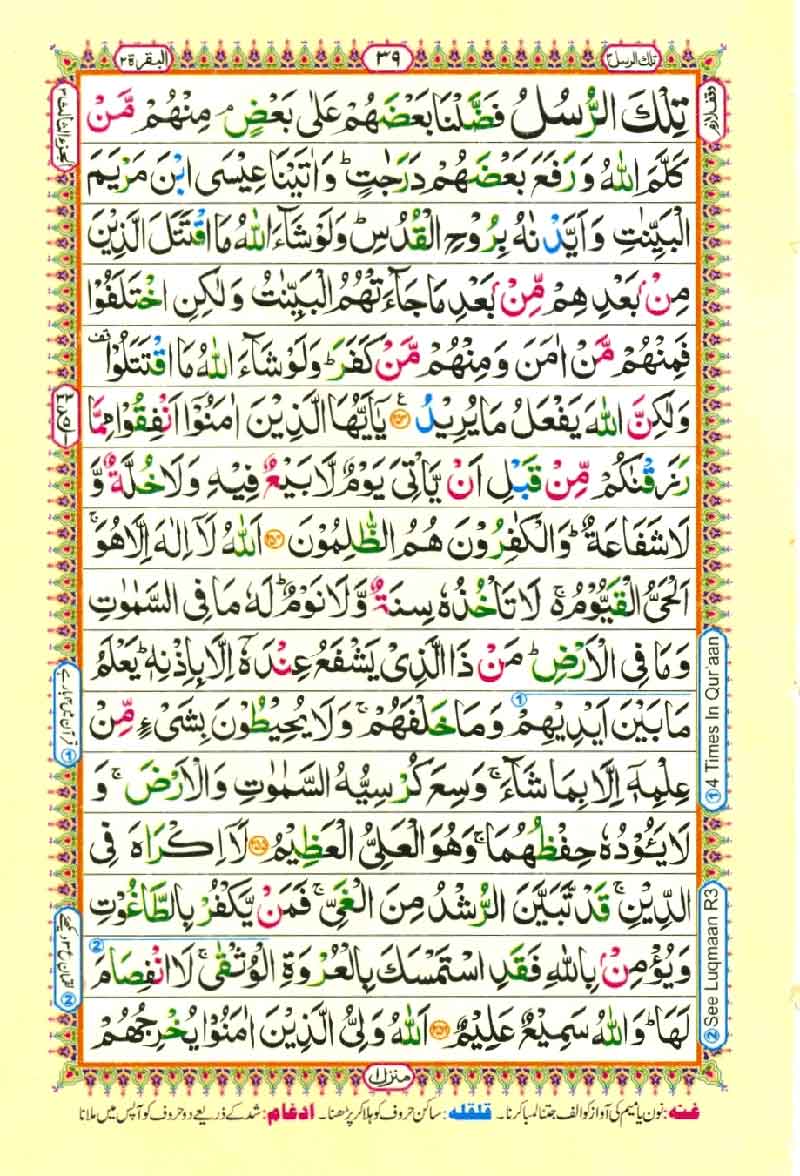 تلك الرسل ٣
٣٩
البقرة ٢
تِلْكَ الرُّسُلُ فَضَّلْنَا بَعْضَهُمْ عَلٰى بَعْضٍ ۘ مِنْهُمْ مَّنْ
كَلَّمَ اللّٰهُ وَرَفَعَ بَعْضَهُمْ دَرَجٰتٍ ؕ وَاٰتَيْنَا عِيْسَى ابْنَ مَرْيَمَ
الْبَيِّنٰتِ وَاَيَّدْنٰهُ بِرُوْحِ الْقُدُسِ ؕ وَلَوْ شَآءَ اللّٰهُ مَا اقْتَتَلَ الَّذِيْنَ
مِنْۢ بَعْدِهِمْ مِّنْۢ بَعْدِ مَا جَآءَتْهُمُ الْبَيِّنٰتُ وَلٰكِنِ اخْتَلَفُوْا
فَمِنْهُمْ مَّنْ اٰمَنَ وَمِنْهُمْ مَّنْ كَفَرَ ؕ وَلَوْ شَآءَ اللّٰهُ مَا اقْتَتَلُوْا ۟
وَلٰكِنَّ اللّٰهَ يَفْعَلُ مَا يُرِيْدُ ﴿۲۵۳﴾ يٰۤاَيُّهَا الَّذِيْنَ اٰمَنُوْۤا اَنْفِقُوْا مِمَّا
رَزَقْنٰكُمْ مِّنْ قَبْلِ اَنْ يَّاْتِيَ يَوْمٌ لَّا بَيْعٌ فِيْهِ وَلَا خُلَّةٌ وَّ
لَا شَفَاعَةٌ ؕ وَالْكٰفِرُوْنَ هُمُ الظّٰلِمُوْنَ ﴿۲۵۴﴾ اَللّٰهُ لَاۤ اِلٰهَ اِلَّا هُوَ ۚ
اَلْحَيُّ الْقَيُّوْمُ ۚ لَا تَاْخُذُهٗ سِنَةٌ وَّلَا نَوْمٌ ؕ لَهٗ مَا فِي السَّمٰوٰتِ
وَمَا فِي الْاَرْضِ ؕ مَنْ ذَا الَّذِيْ يَشْفَعُ عِنْدَهٗۤ اِلَّا بِاِذْنِهٖ ؕ يَعْلَمُ
مَا بَيْنَ اَيْدِيْهِمْ وَمَا خَلْفَهُمْ ۚ وَلَا يُحِيْطُوْنَ بِشَيْءٍ مِّنْ
عِلْمِهٖۤ اِلَّا بِمَا شَآءَ ۚ وَسِعَ كُرْسِيُّهُ السَّمٰوٰتِ وَالْاَرْضَ ۚ وَ
لَا يَـُٔوْدُهٗ حِفْظُهُمَا ۚ وَهُوَ الْعَلِيُّ الْعَظِيْمُ ﴿۲۵۵﴾ لَاۤ اِكْرَاهَ فِي
الدِّيْنِ ۙ قَدْ تَّبَيَّنَ الرُّشْدُ مِنَ الْغَيِّ ۚ فَمَنْ يَّكْفُرْ بِالطَّاغُوْتِ
وَيُؤْمِنْۢ بِاللّٰهِ فَقَدِ اسْتَمْسَكَ بِالْعُرْوَةِ الْوُثْقٰى ۚ لَا انْفِصَامَ
لَهَا ؕ وَاللّٰهُ سَمِيْعٌ عَلِيْمٌ ﴿۲۵۶﴾ اَللّٰهُ وَلِيُّ الَّذِيْنَ اٰمَنُوْا يُخْرِجُهُمْ
وقف لازم
① 4 Times In Qur'aan
② See Luqmaan R3
الجزء الثالث ٣
① قرآن میں ۴ بار ہے
② لقمان ع۳ دیکھئے
منزل ۱
غنہ: نون یا میم کی آواز کو الف جتنا لمبا کرنا۔ قلقلہ: ساکن حروف کو ہلا کر پڑھنا۔ ادغام: شد کے ذریعے دو حروف کو آپس میں ملانا